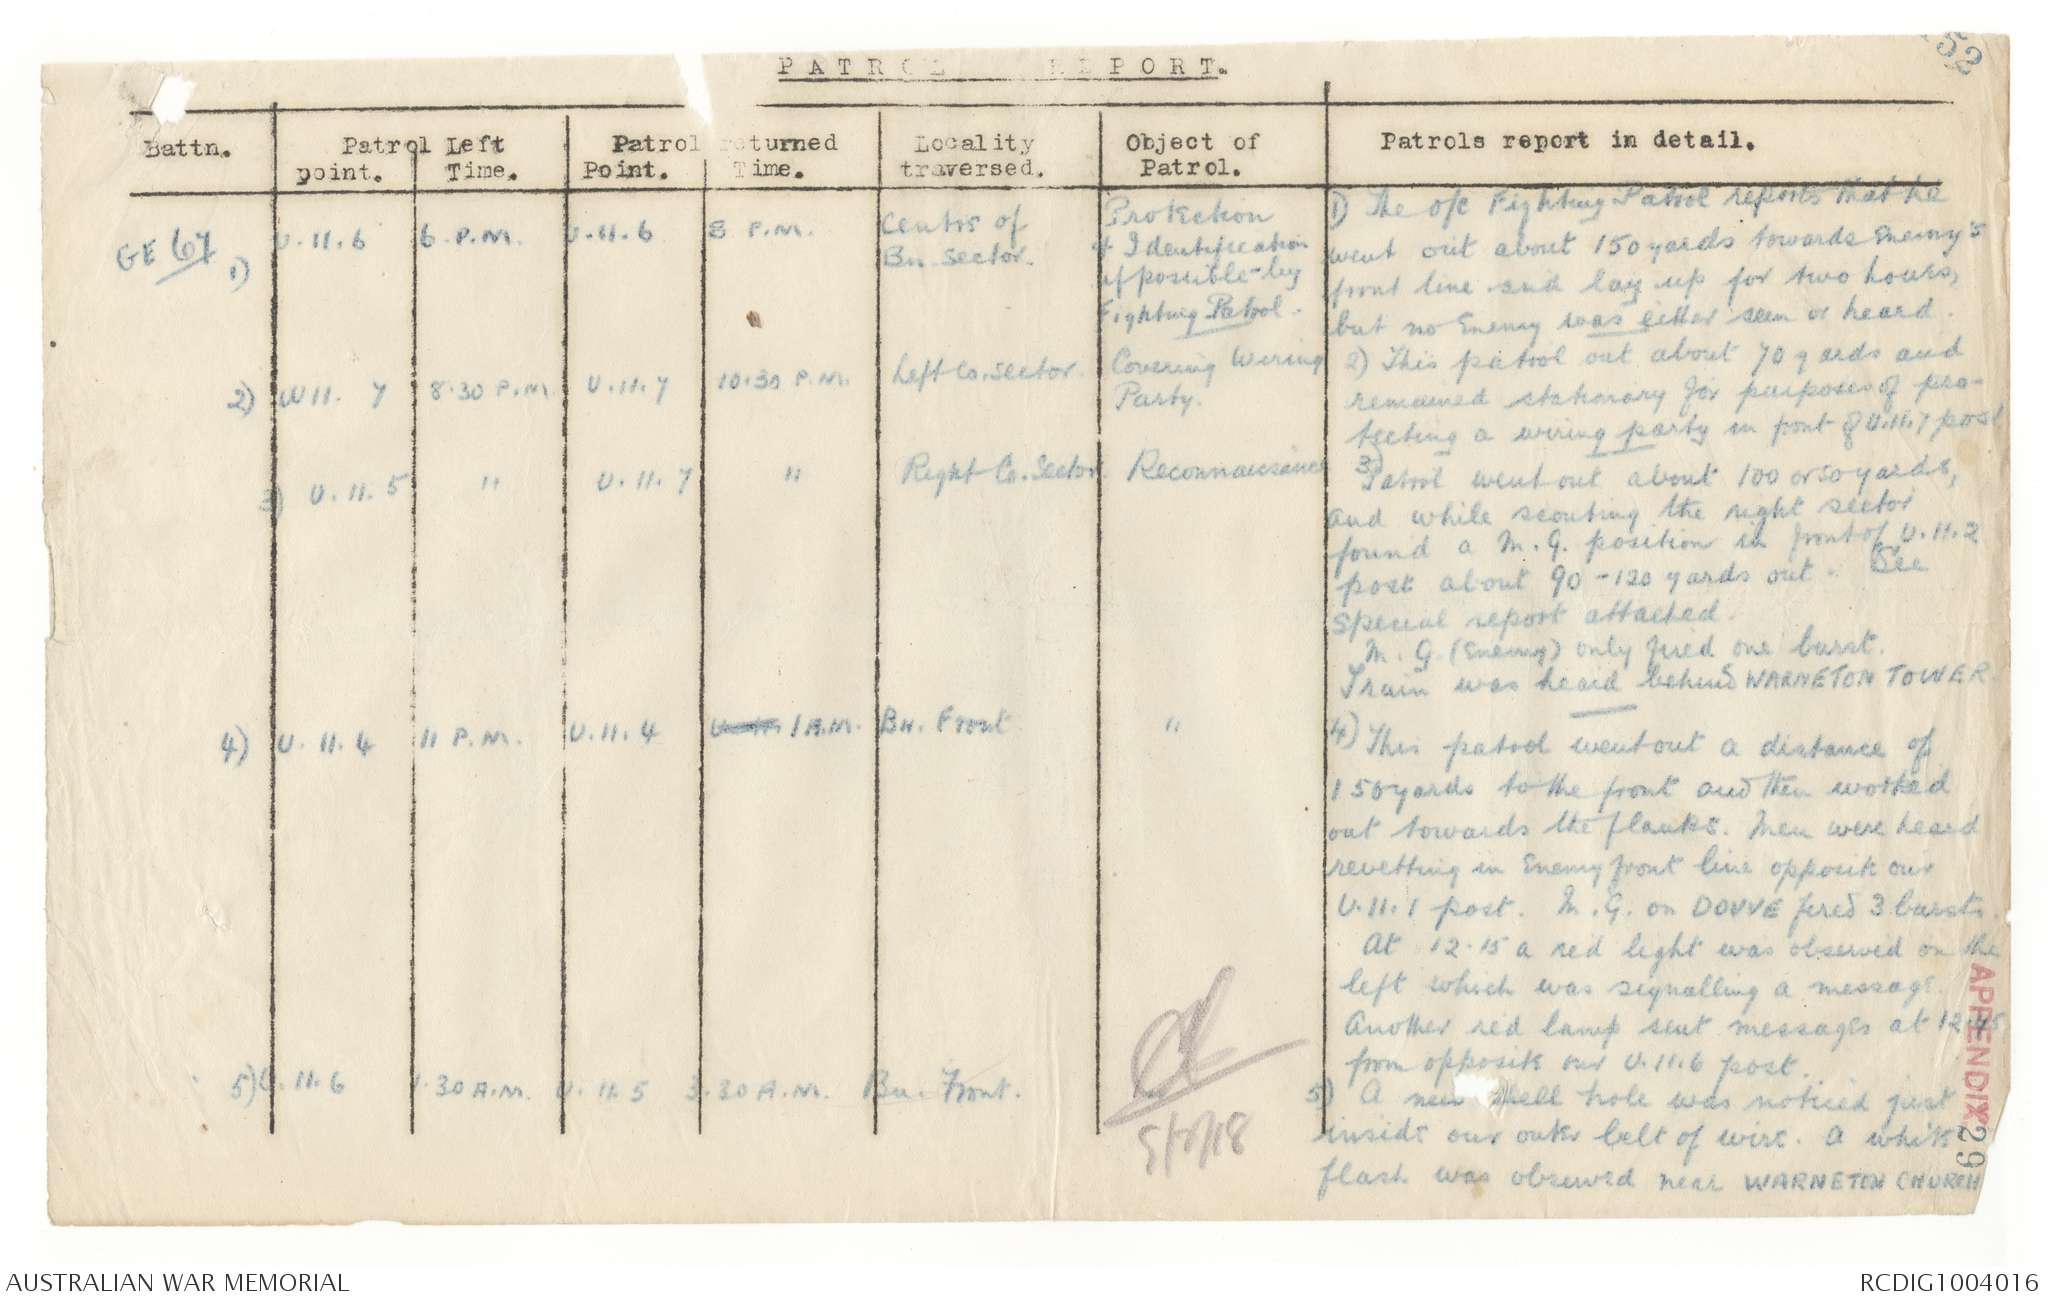 52
PATROL REPORT.
Battn.
Patrol Left
point. Time.
Patrol returned
Point. Time.
Locality
traversed.
Object of
Patrol.
Patrols report in detail.
GE 67
1) U.11.6 6 P.M. U.11.6 8 P.M.
Centre of
Bn Sector.
Protection
+ Identification
if possible - by
Fighting Patrol.
1) The o/c Fighting Patrol reports that he
went out about 150 yards towards Enemy's
front line and lay up for two hours,
but no Enemy was either seen or heard.
2) U11. 7 8.30 P.M. U.11.7 10.30 P.M. Left Co. Sector.
Covering Wiring
Party.
2) This patrol out about 70 yards and
remained stationary for purposes of pro-
tecting a wiring party in front of U.11.7 post
3) U.11.5 " U.11.7 " Right Co. Sector. Reconnaissance
3) Patrol went out about 100 or 50 yards,
and while scouting the right sector
found a M.G. position in front of U.11.2
post about 90-120 yards out. See
special report attached.
M.G. (Enemy) only fired one burst.
Train was heard behind WARNETON TOWER.
4) U.11.4 11 P.M. U.11.4 1 A.M. Bn. Front "
4) This patrol went out a distance of
150 yards to the front and then worked
out towards the flanks. Men were heard
revetting in Enemy front line opposite our
U.11.1 post. M.G. on DOUVE fired 3 bursts.
At 12.15 a red light was observed on the
left which was signalling a message.
Another red lamp sent messages at 12.45
from opposite our U.11.6 post.
5) U.11.6 1.30 A.M. U.11.5 3.30 A.M. Bn. Front.
5) A new shell hole was noticed just
inside our outer belt of wire. A white
flash was observed near WARNETON CHURCH
APPENDIX 29
AUSTRALIAN WAR MEMORIAL
RCDIG1004016